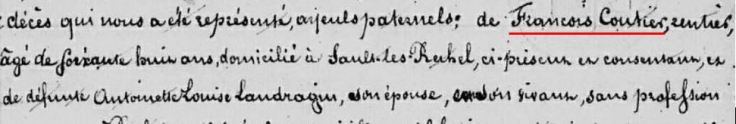 décès qui nous a été représenté, aïeuls paternels; de François Coutier, rentier,
âgé de soixante huit ans, domicilié à Sault-les-Rethel, ci-présent et consentant, et
de défunte Antoinette Louise Landragin, son épouse, en son vivant, sans profession